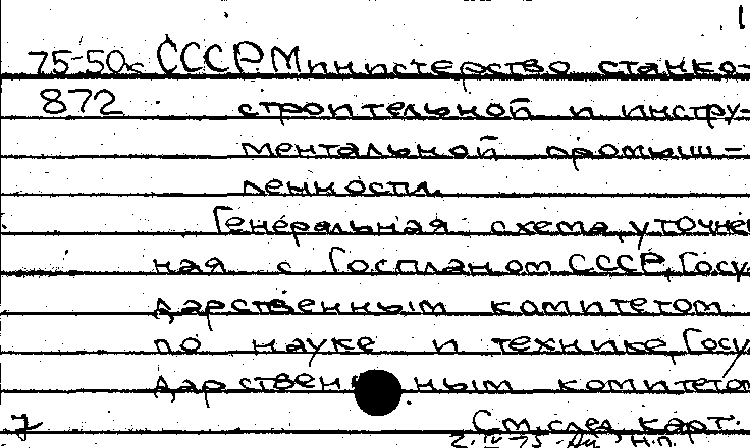 1
75-50с СССР Министерство станко-
872 строительной и инстру-
ментальной промыш-
ленности.
Генеральная схема, уточнен
ная с Госпланом СССР, Госу
дарственным комитетом
по науке и технике, Госу
дарственным комитетом
7 См. след. карт.
2.IV-75 н.п.